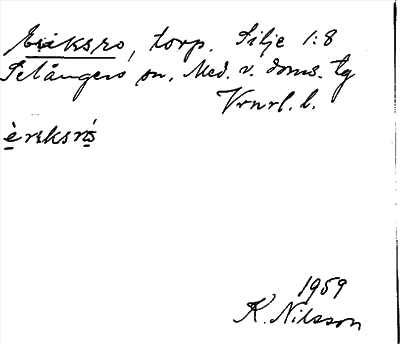 Eriksro, torp. Silje 1:8
Selångers sn, Med. v. doms. tg
Vrnrl. l.
èrıksró̲s
1959
K. Nilsson